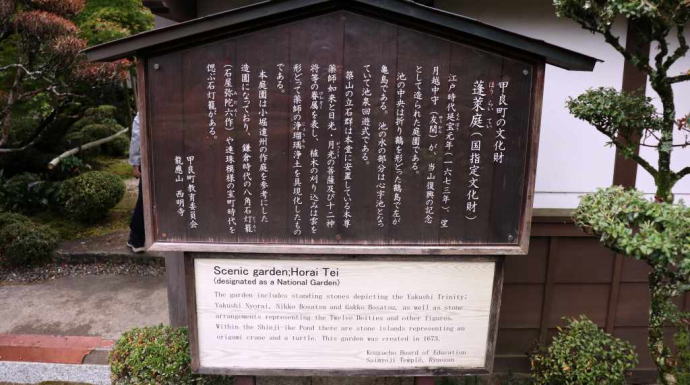 甲良町の文化財
ほうらいてい
蓬莱庭(国指定文化財)
江戸時代延宝元年(一六七三年)、望
月越中守(友閑)が、当山復興の記念
として造られた庭園である。
池の中央は折り鶴を形どった鶴島で左が
亀島である。池の水の部分は心字池となっ
ていて池泉回遊式である。
築山の立石群は本堂に安置している本尊
薬師如来と日光・月光の菩薩及び十二神
将等の眷属を表し、植木の刈り込みは雲を
形どって薬師の浄瑠璃浄土を具現化したもの
である。
本庭園は小堀遠州の作庭を参考にした
造園になっており、鎌倉時代の八角石灯籠
(石屋弥陀六作)や連珠模様の室町時代を
偲ぶ石灯籠がある。
甲良町教育委員会
龍應山 西明寺
Scenic garden;Horai Tei
(designated as a National Garden)
The garden includes standing stones depicting the Yakushi Trinity;
Yakushi Nyorai, Nikko Bosatsu and Gakko Bosatsu, as well as stone
arrangements representing the Twelve Deities and other figures.
Within the Shinji-ike Pond there are stone islands representing an
origami crane and a turtle. This garden was created in 1673.
Board of Education
Saimyoji Temple,